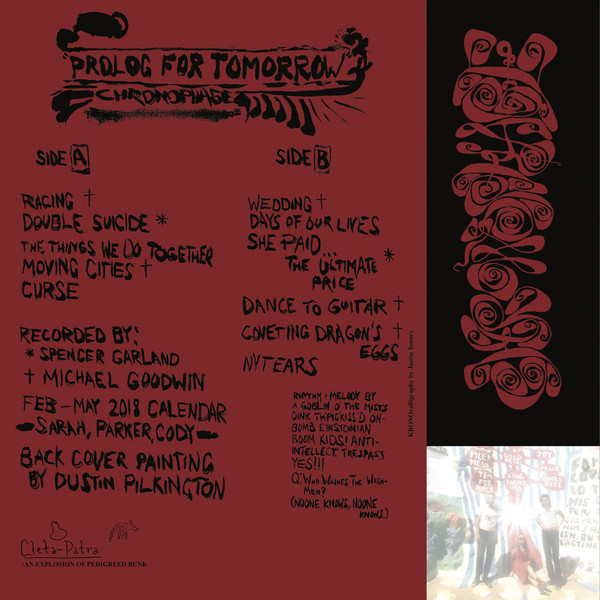 PROLOG FOR TOMORROW
CHRONOPHAGE
SIDE A
RACING †
DOUBLE SUICIDE *
THE THINGS WE DO TOGETHER
MOVING CITIES †
CURSE
RECORDED BY:
* SPENCER GARLAND
† MICHAEL GOODWIN
FEB-MAY 2018 CALENDAR
- SARAH, PARKER, CODY -
BACK COVER PAINTING
BY DUSTIN PILKINGTON
Cleta-Patra
:AN EXPLOSION OF PEDIGREED BUNK
SIDE B
WEDDING †
DAYS OF OUR LIVES
SHE PAID...
THE ULTIMATE *
PRICE
DANCE TO GUITAR †
COVETING DRAGON'S †
EGGS
NYTEARS
RHYTHM + MELODY BY
A GOBLIN O' THE MISTS
OINK THPIGKISS'D ON-
BOMB EINSTONIAN
BOOM KIDS! ANTI-
INTELLECT TRESPASS
YES!!!
Q: WHO WASHES THE WASH-
MEN?
(NOONE KNOWS, NOONE
KNOWS.)